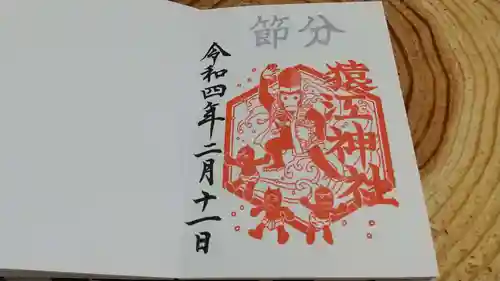 節分
猿江神社
令和四年二月十一日